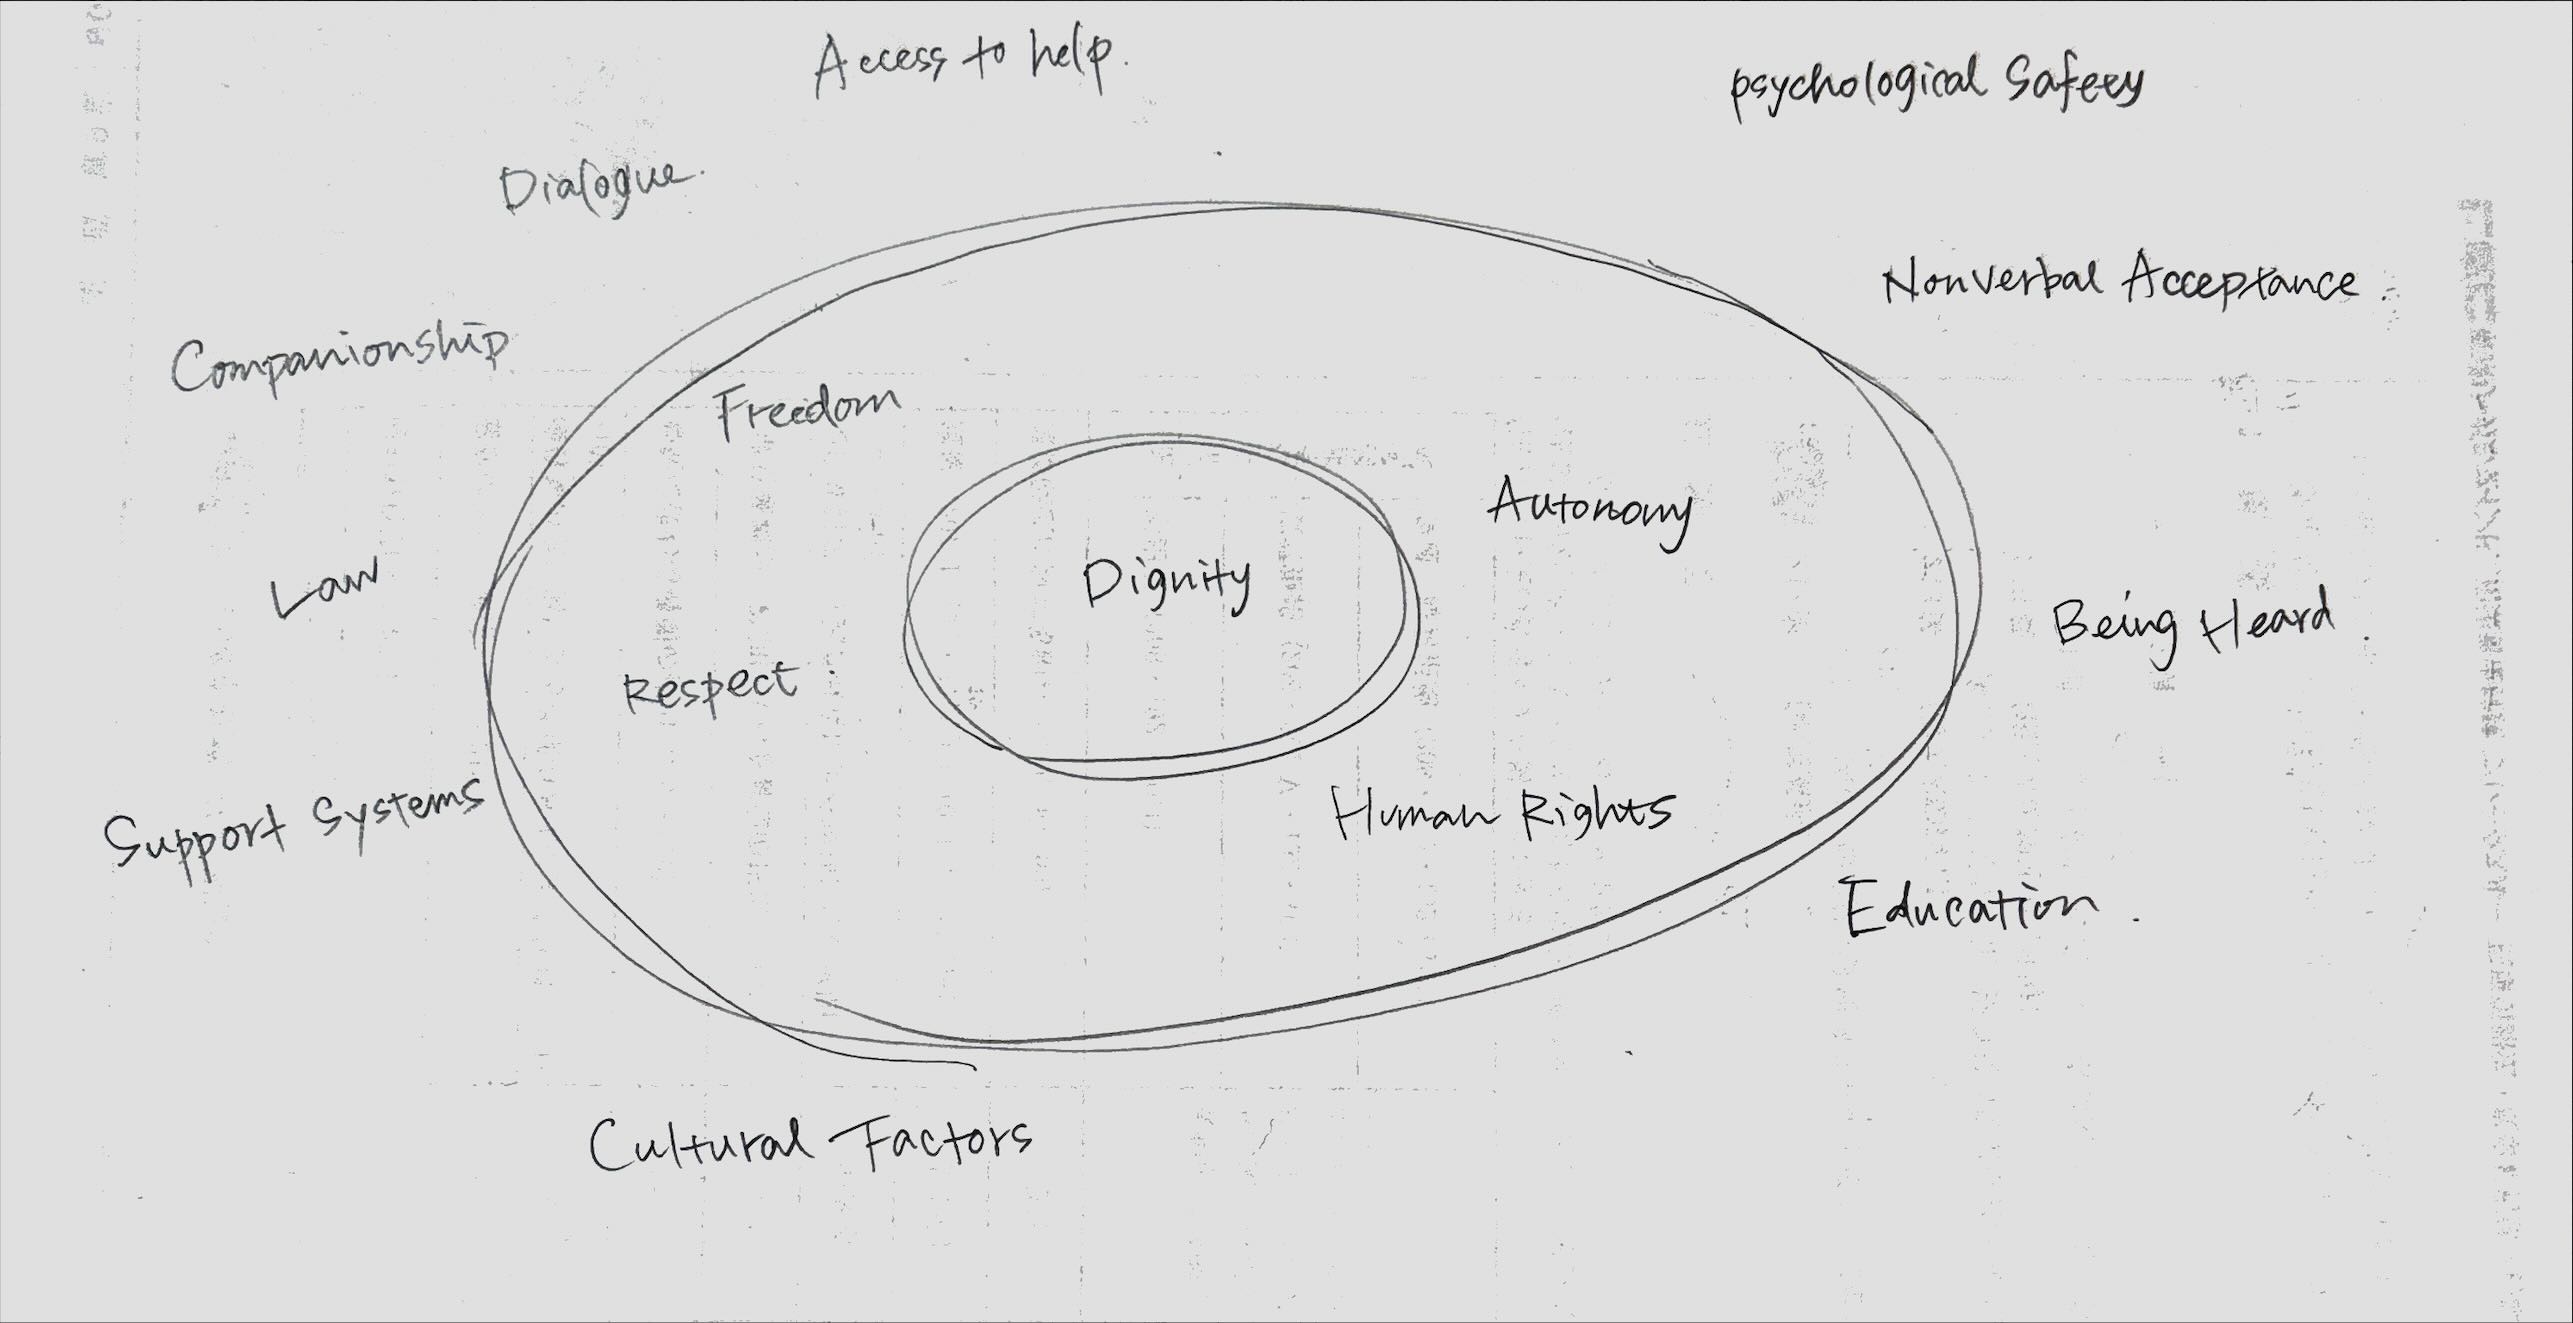 Access to help.
psychological Safety
Dialogue.
Nonverbal Acceptance.
Companionship
Freedom
Autonomy
Dignity
Law
Being Heard.
Respect.
Support Systems
Human Rights
Education.
Cultural Factors